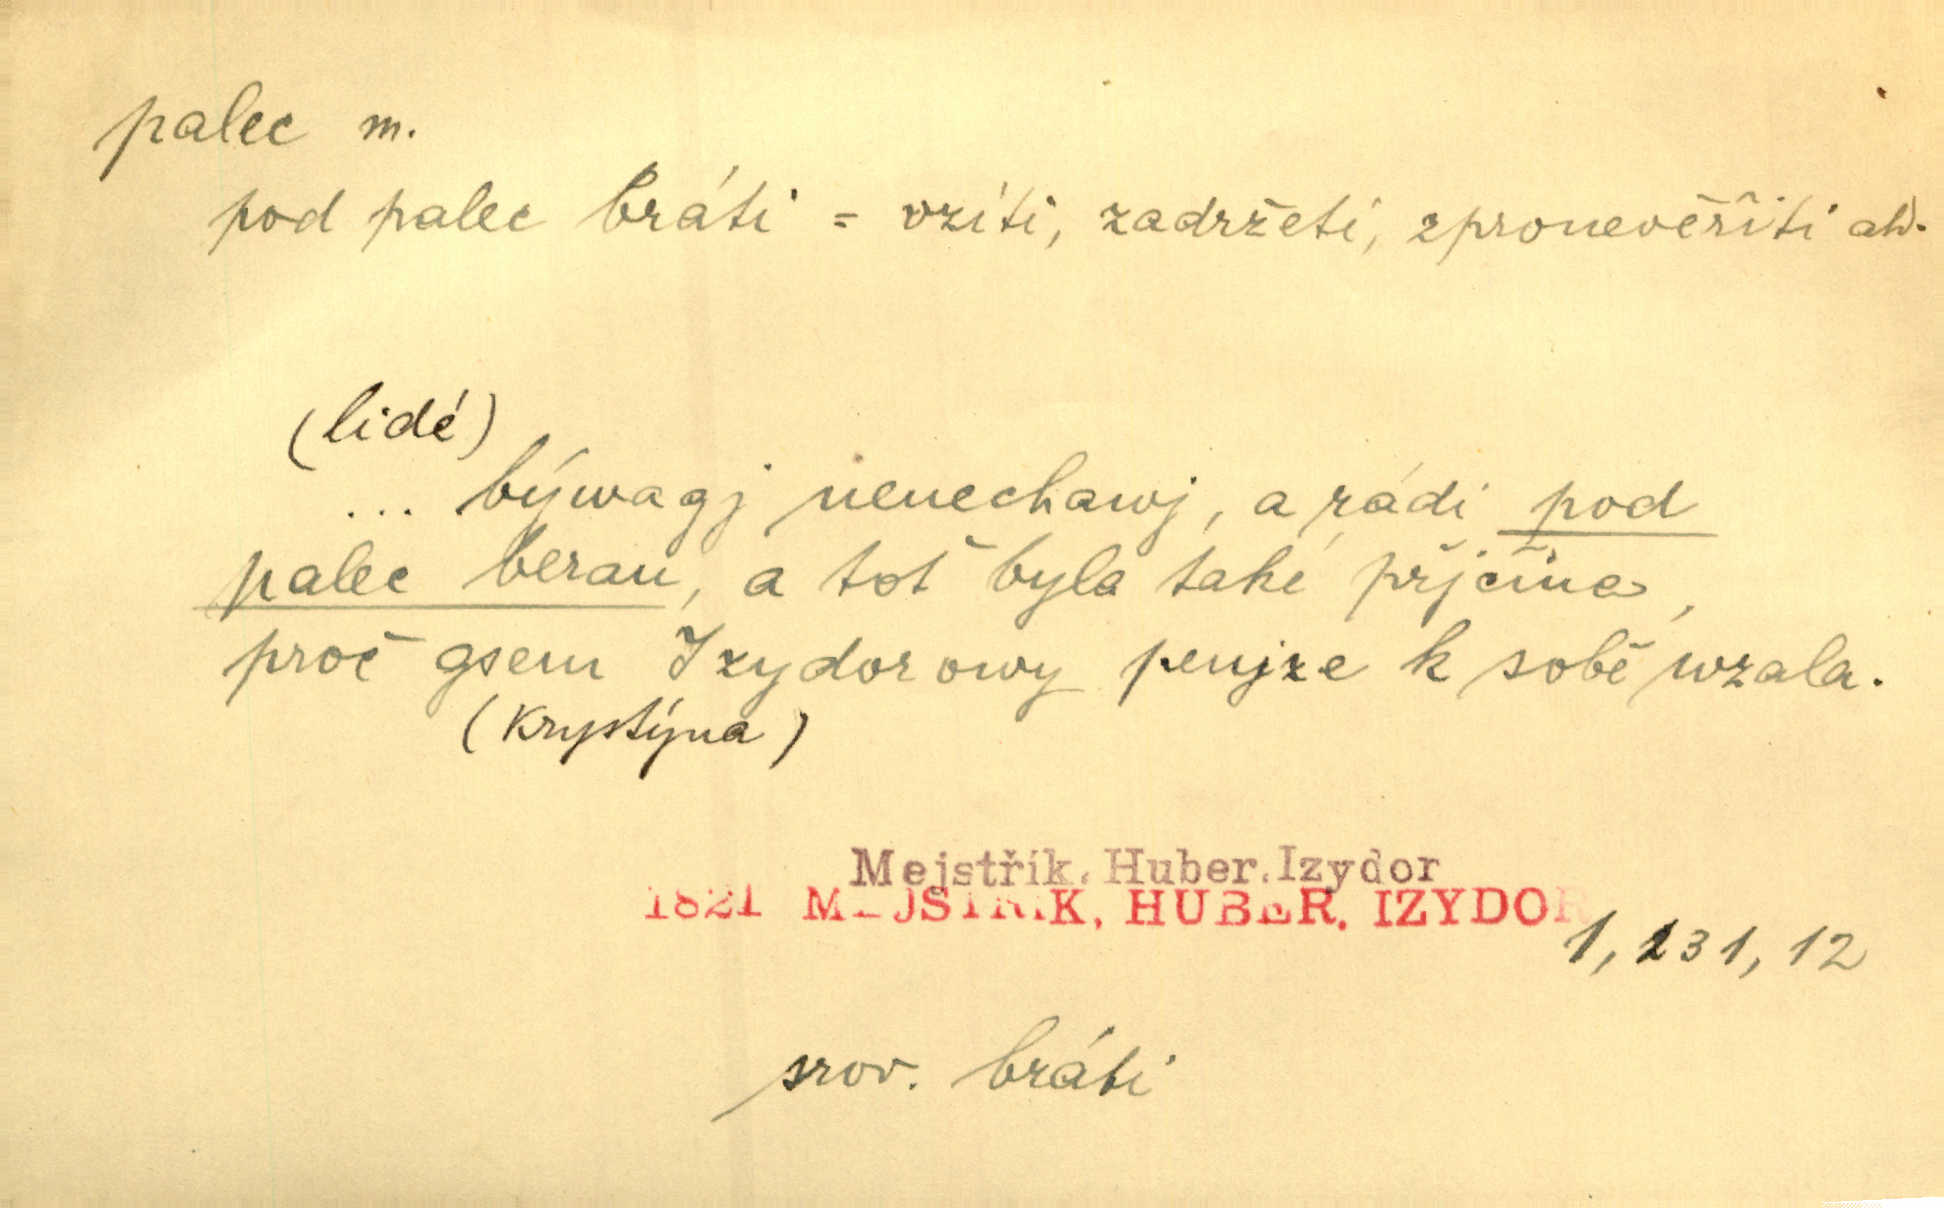 palec m.
pod palec bráti = vzíti, zadržeti, zpronevěřiti atd.
(lidé)
... býwagj nenechawj, a rádi pod
palec berau, a toť byla také přjčina,
proč gsem Izydorowy penjze k sobě wzala.
(Krystýna)
Mejstřík, Huber, Izydor
1821 MEJSTŘÍK, HUBER, IZYDOR
1, 231, 12
srov. bráti